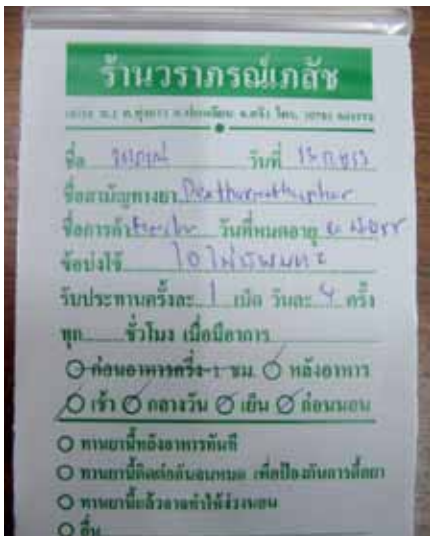 ร้านวราภรณ์เภสัช
ชื่อ วันที่
ชื่อสามัญทางยา
ชื่อการค้า วันที่หมดอายุ
ข้อบ่งใช้ ไอไม่มีเสมหะ
รับประทานครั้งละ 1 เม็ด วันละ 4 ครั้ง
ทุก ชั่วโมง เมื่อมีอาการ
ก่อนอาหารครึ่ง-1 ชม. หลังอาหาร
เช้า กลางวัน เย็น ก่อนนอน
ทานยานี้หลังอาหารทันที
ทานยานี้ติดต่อกันจนหมด เพื่อป้องกันการดื้อยา
ทานยานี้แล้วอาจทำให้ง่วงนอน
อื่น